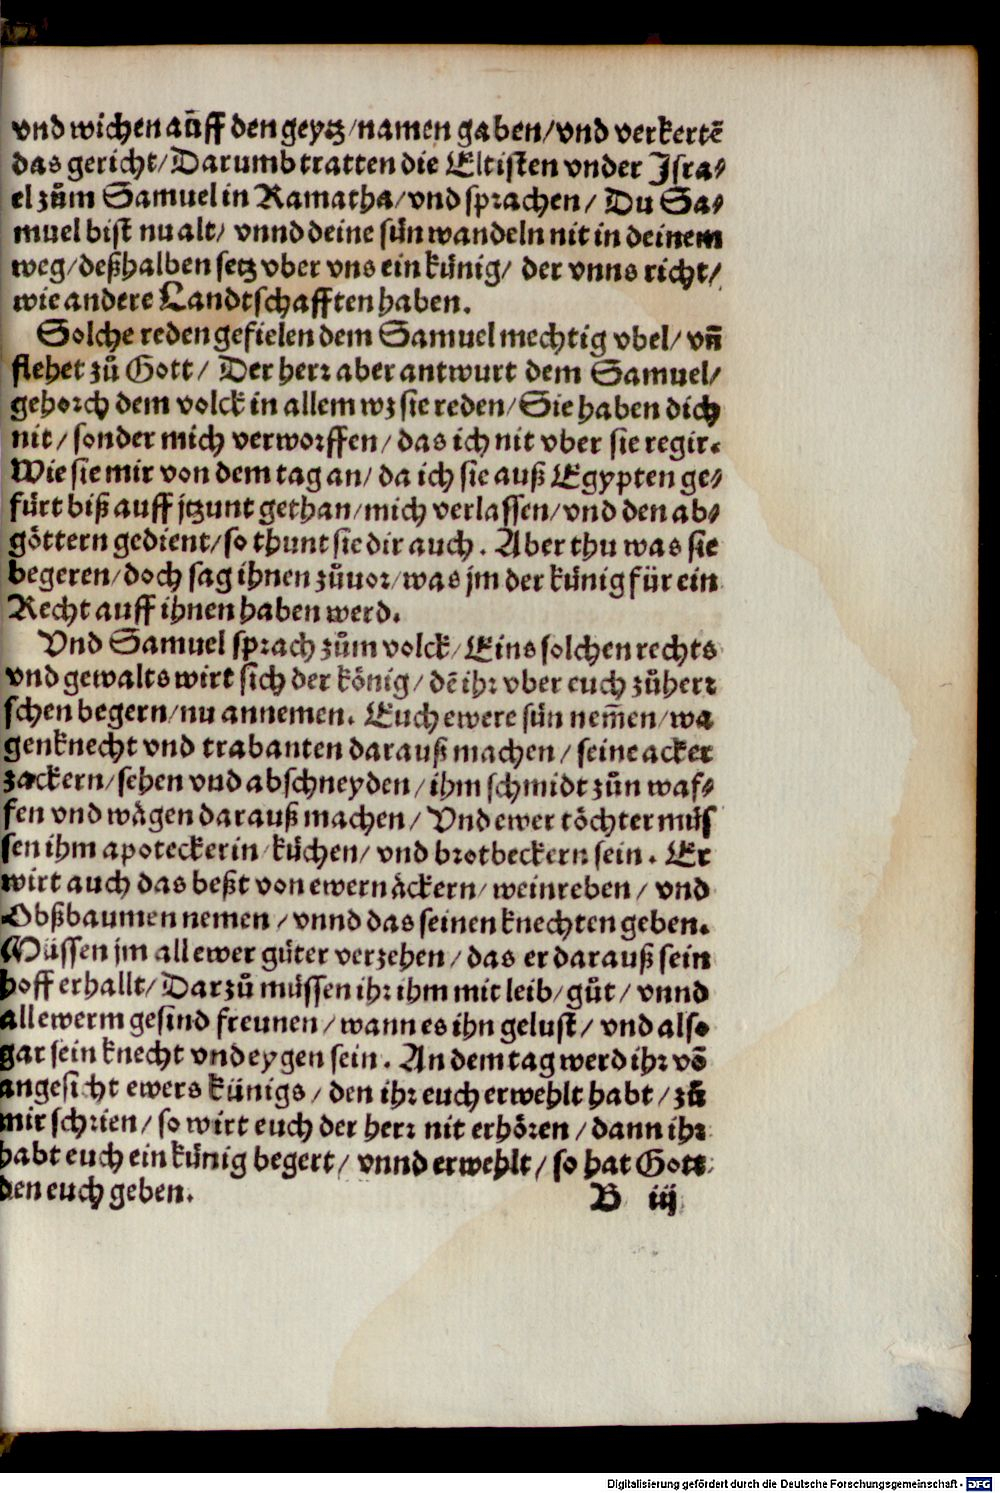 vnd wichen aůff den geytz/namen gaben/vnd verkertẽ
das gericht/Darumb tratten die Eltisten vnder Jsra-
el zům Samuel in Ramatha/vnd sprachen/ Du Sa-
muel bist nu alt/ vnnd deine sün wandeln nit in deinem
weg/deßhalben setz vber vns ein künig/ der vnns richt/
wie andere Landtschafften haben.
Solche reden gefielen dem Samuel mechtig vbel/ vñ
flehet zů Gott/ Der herr aber antwurt dem Samuel/
gehorch dem volck in allem wz sie reden/Sie haben dich
nit/ sonder mich verworffen/das ich nit vber sie regir.
Wie sie mir von dem tag an/ da ich sie auß Egypten ge-
fürt biß auff jtzunt gethan/mich verlassen/vnd den ab-
göttern gedient/so thunt sie dir auch. Aber thu was sie
begeren/doch sag ihnen zůuor/was jm der künig für ein
Recht auff ihnen haben werd.
Vnd Samuel sprach zům volck/Eins solchen rechts
vnd gewalts wirt sich der könig/dẽ ihr vber euch zůherr
schen begern/nu annemen. Euch ewere sün nem̃en/wa
genknecht vnd trabanten darauß machen/ seine acker
zackern/sehen vnd abschneyden/ihm schmidt zůn waf-
fen vnd wägen darauß machen/ Vnd ewer töchter müs
sen ihm apoteckerin/küchen/ vnd brotbeckern sein. Er
wirt auch das beßt von ewern äckern/weinreben/ vnd
Obßbaumen nemen/vnnd das seinen knechten geben.
Müssen jm all ewer güter verzehen/das er darauß sein
hoff erhallt/Darzů müssen ihr ihm mit leib/gůt/ vnnd
all ewerm gesind freunen/wann es ihn gelust/ vnd also
gar sein knecht vnd eygen sein. An dem tag werd ihr võ
angesicht ewers künigs/den ihr euch erwehlt habt/zů
mir schrien/so wirt euch der herr nit erhören/dann ihr
habt euch ein künig begert/ vnnd erwehlt/so hat Gott
den euch geben.
B iij
Digitalisierung gefördert durch die Deutsche Forschungsgemeinschaft - DFG